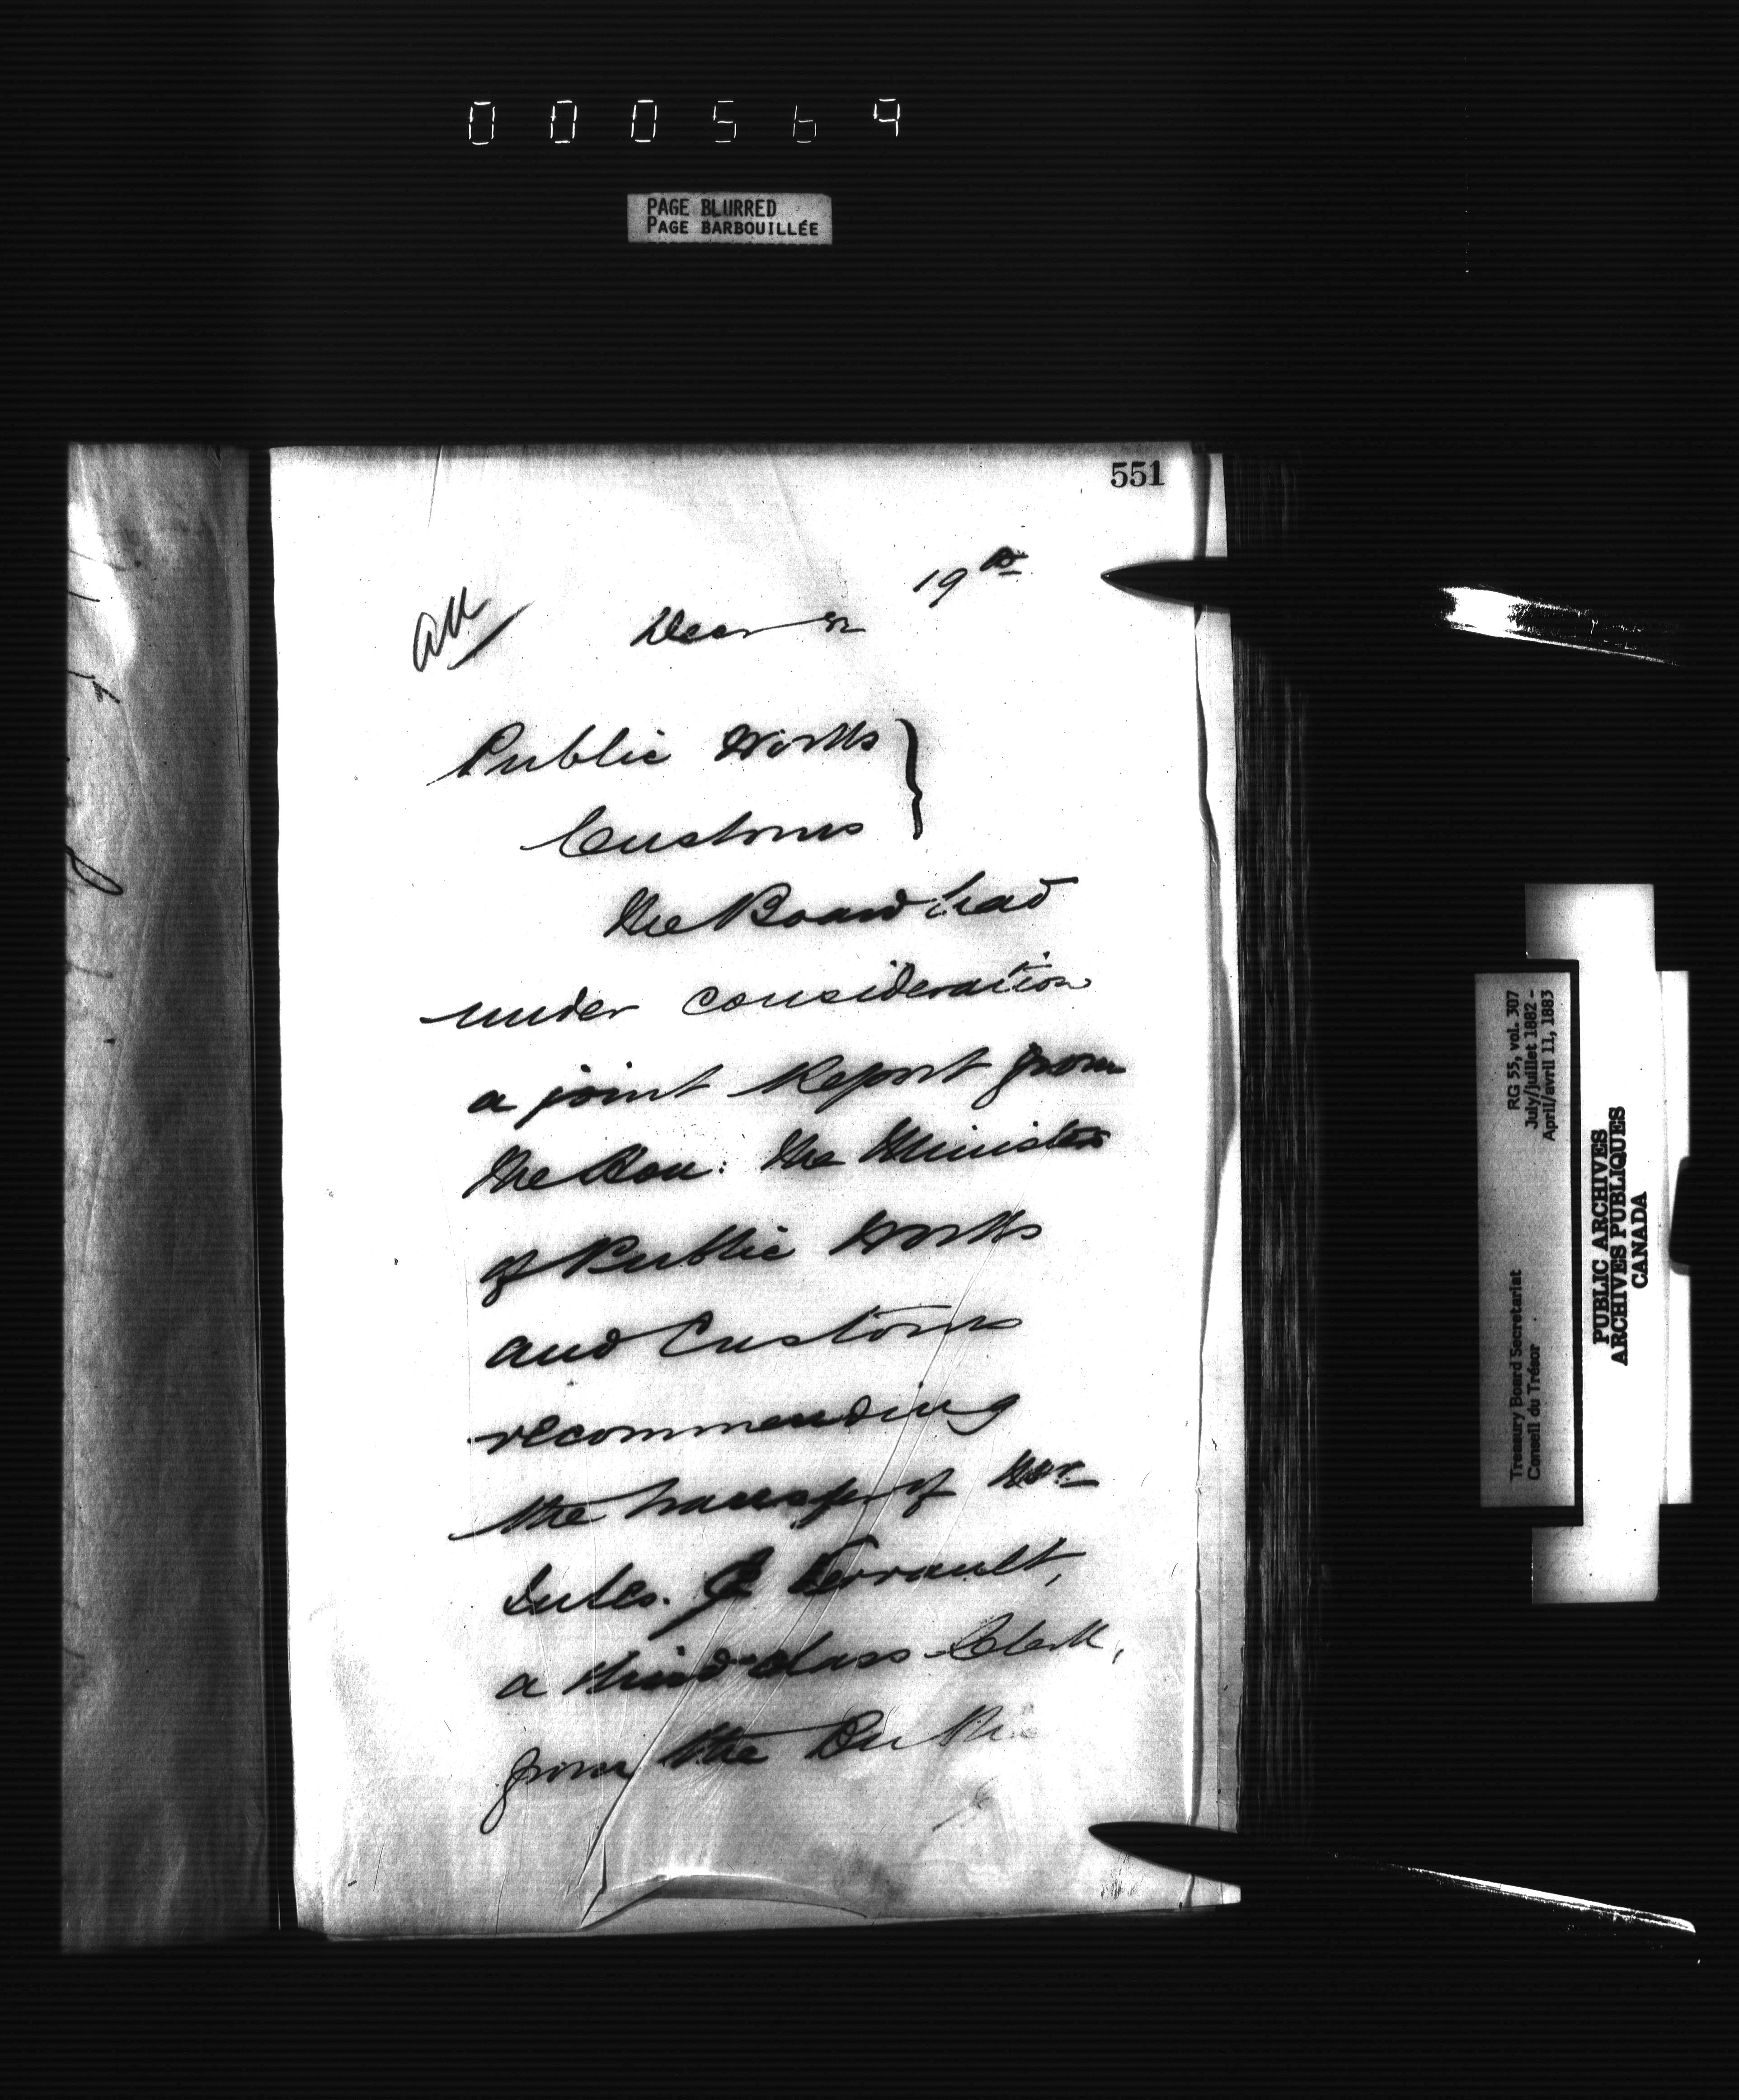 000569
PAGE BLURRED
PAGE BARBOUILLÉE
551
19th
Public Works }
Customs
The Board had
under consideration
a joint Report from
the Hon: the Minister
of Public Works
and Customs
recommending
the transfer of Mr
Jules Verrault,
a third class Clerk,
from the Public
RG 55, vol. 307
July/juillet 1882 -
April/avril 11, 1883
Treasury Board Secretariat
Conseil du Trésor
PUBLIC ARCHIVES
ARCHIVES PUBLIQUES
CANADA